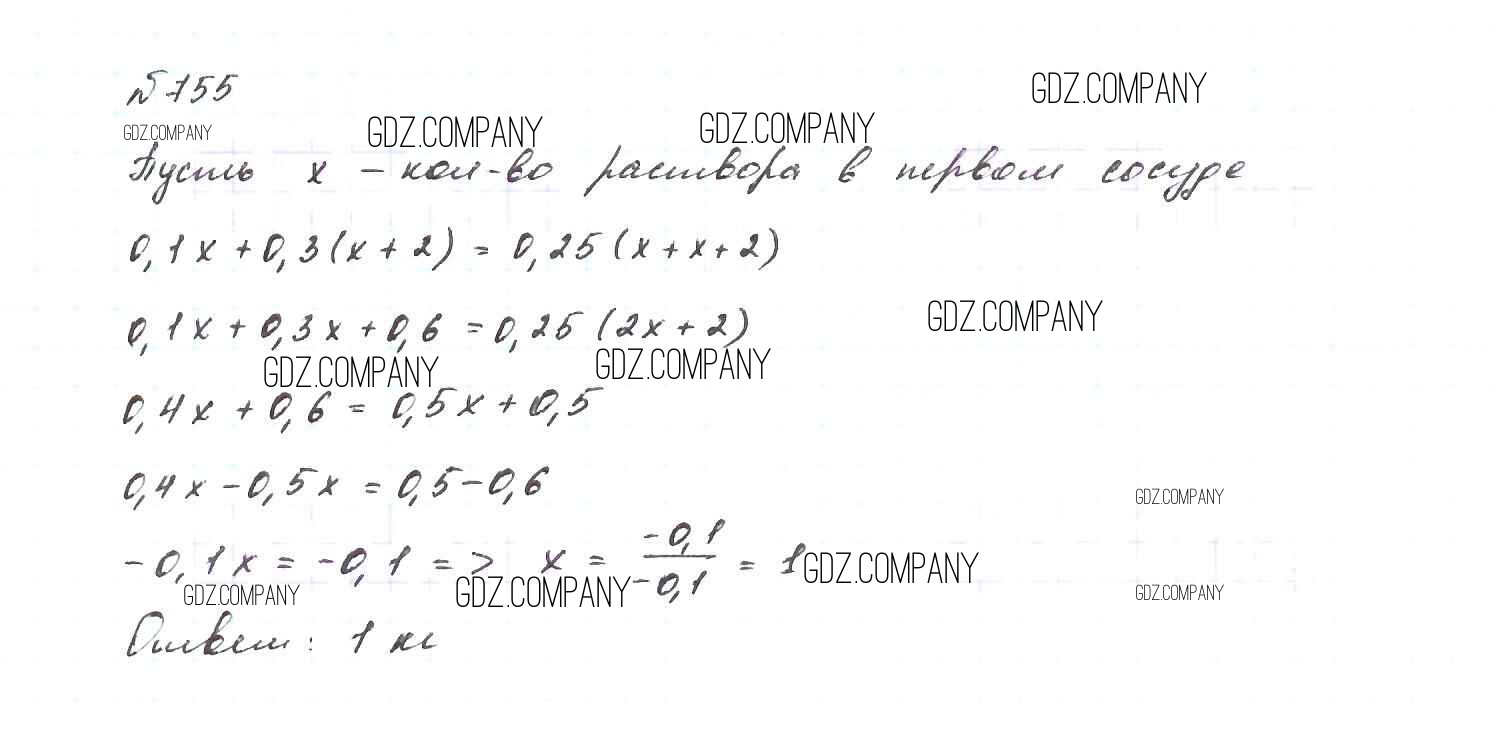 № 755
GDZ.COMPANY
GDZ.COMPANY GDZ.COMPANY GDZ.COMPANY
Пусть x – кол-во раствора в первом сосуде
0,1x + 0,3(x + 2) = 0,25 (x + x + 2)
0,1x + 0,3x + 0,6 = 0,25 (2x + 2)
GDZ.COMPANY
GDZ.COMPANY GDZ.COMPANY
0,4x + 0,6 = 0,5x + 0,5
0,4x – 0,5x = 0,5 – 0,6
GDZ.COMPANY
-0,1x = -0,1 => x = -0,1 / -0,1 = 1
GDZ.COMPANY
GDZ.COMPANY GDZ.COMPANY GDZ.COMPANY
Ответ: 1 кг